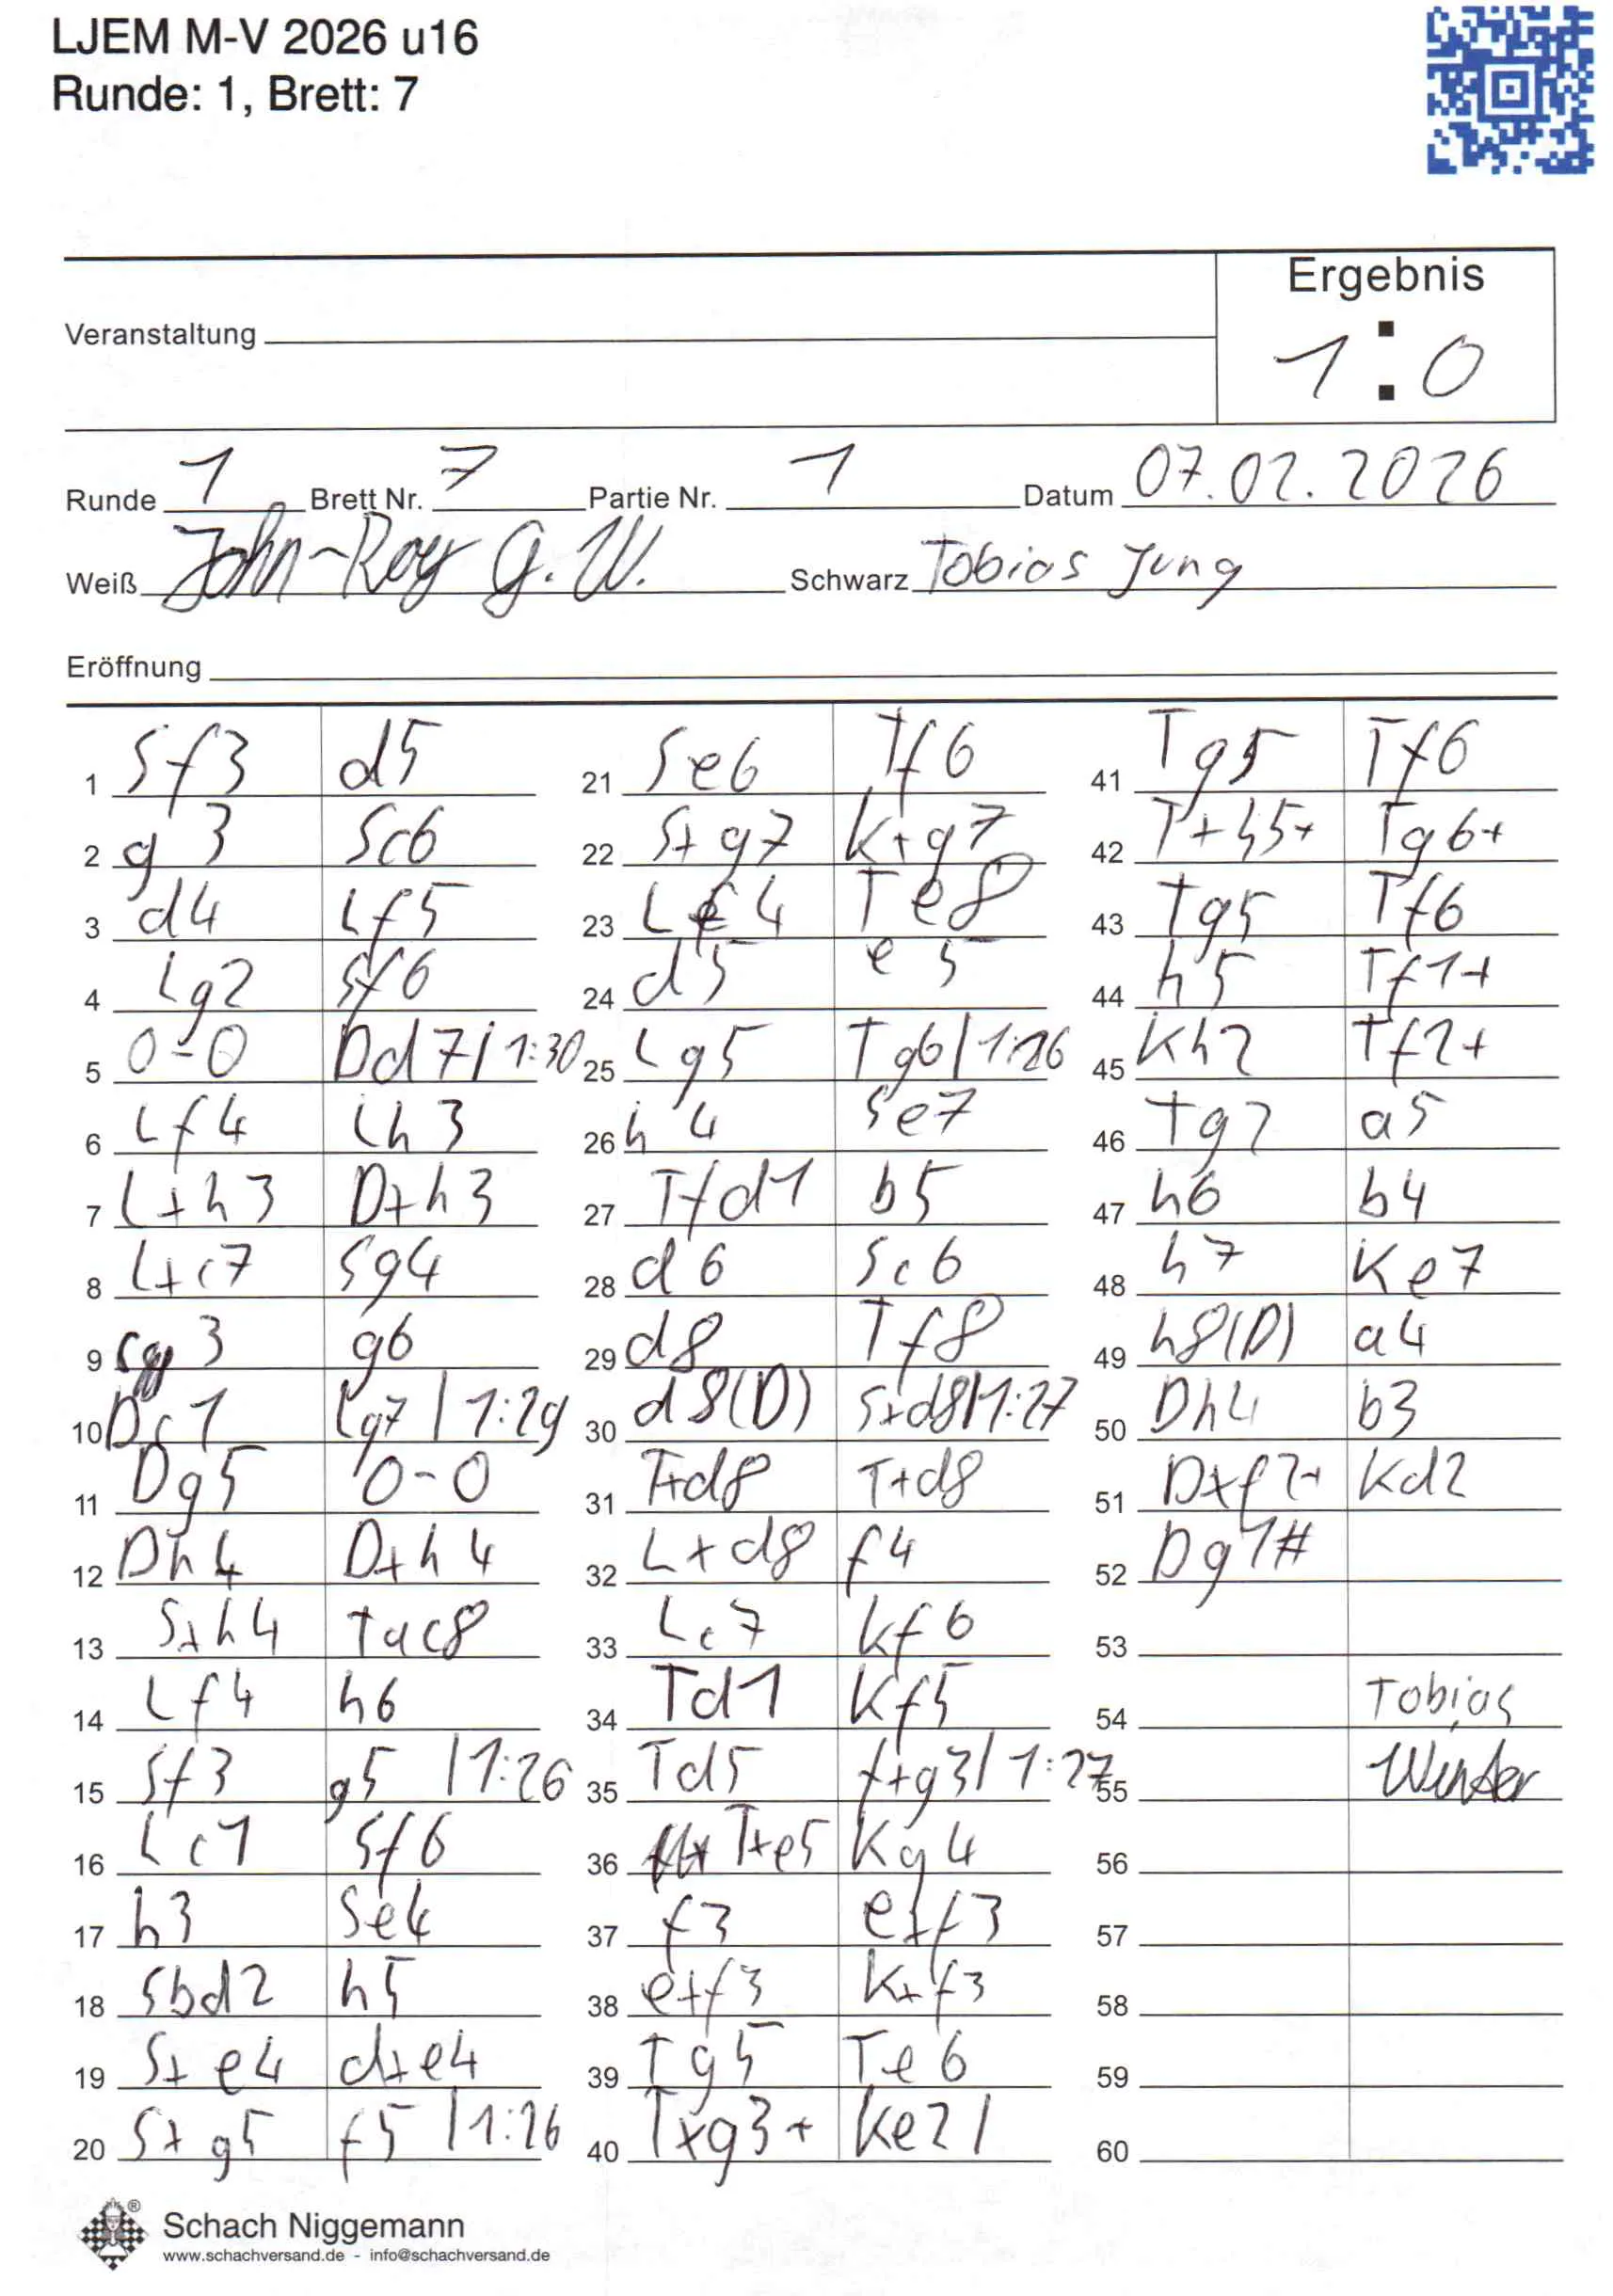 LJEM M-V 2026 u16
Runde: 1, Brett: 7
Ergebnis
Veranstaltung
1:0
Runde 1 Brett Nr. 7 Partie Nr. 1 Datum 07.02.2026
Weiß John-Roy G. W. Schwarz Tobias Jung
Eröffnung
1 Sf3 d5 21 Se6 Tf6 41 Tg5 Tf6
2 g3 Sc6 22 S+g7 K+g7 42 T+h5+ Tg6+
3 d4 Lf5 23 Lf4 Te8 43 Tg5 Tf6
4 Lg2 Sf6 24 d5 e5 44 h5 Tf1+
5 0-0 Dd7 | 1:30 25 Lg5 Tg6 | 1:26 45 Kh2 Tf2+
6 Lf4 Lh3 26 h4 Se7 46 Tg2 a5
7 L+h3 D+h3 27 Tfd1 b5 47 h6 b4
8 L+c7 Sg4 28 d6 Sc6 48 h7 Ke7
9 3 g6 29 d8 Tf8 49 h8(D) a4
10 Dc1 Lg7 | 1:29 30 d8(D) S+d8 | 1:27 50 Dh4 b3
11 Dg5 0-0 31 T+d8 T+d8 51 Dxf2+ Kd2
12 Dh4 D+h4 32 L+d8 f4 52 Dg1#
13 S+h4 Tac8 33 Lc7 Kf6 53
14 Lf4 h6 34 Td1 Kf5 54 Tobias
15 Sf3 g5 | 1:26 35 Td5 f+g3 | 1:27 55 Winter
16 Lc1 Sf6 36 T+e5 Kg4 56
17 h3 Se4 37 f3 e+f3 57
18 Sbd2 h5 38 e+f3 K+f3 58
19 S+e4 d+e4 39 Tg5 Te6 59
20 S+g5 f5 | 1:26 40 Txg3+ Ke2 | 60
® Schach Niggemann
www.schachversand.de - info@schachversand.de